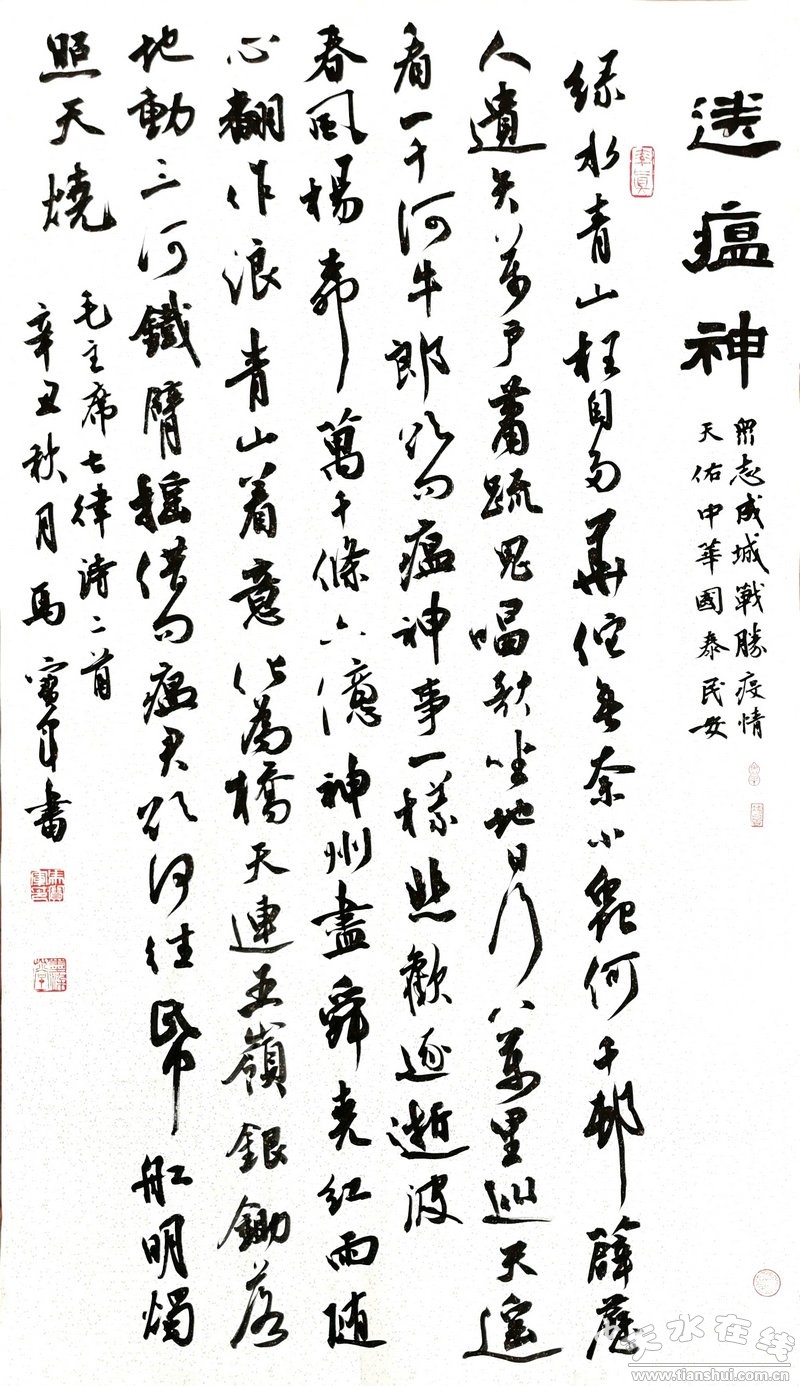 送瘟神
眾志成城戰勝疫情
天佑中華國泰民安
绿水青山枉自多華佗無奈小蟲何千邨薜荔
人遺矢萬户蕭疏鬼唱歌坐地日行八萬里巡天遥
看一千河牛郎欲问瘟神事一樣悲歡逐逝波
春風楊柳萬千條六億神州盡舜尭红雨随
心翻作浪青山着意化為橋天連五嶺銀鋤落
地動三河鐵臂摇借问瘟君欲何往帋船明燭
照天燒
毛主席七律诗二首
辛丑秋月馬書
天水在线
www.tianshui.com.cn